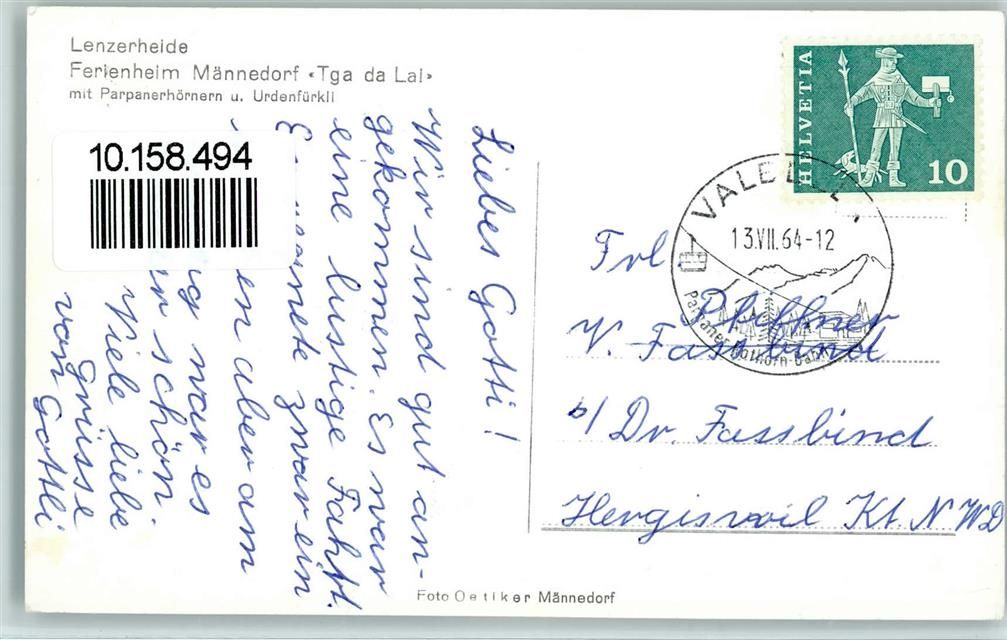 Lenzerheide
Ferienheim Männedorf «Tga da Lai»
mit Parpanerhörnern u. Urdenfürkli
10.158.494
Liebes Gotti!
Wir sind gut an-
gekommen. Es war
eine lustige Fahrt.
zwar ein
en aber am
war es
schön.
Viele liebe
Grüsse
vom Gottli
HELVETIA
10
13.VII.64-12
Frl
Pfiffner
V. Fassbind
b/ Dr. Fassbind
Hergiswil Kt. NWD
Foto Oetiker Männedorf